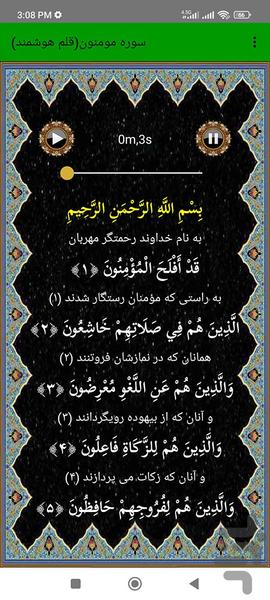 3:08 PM
سوره مومنون(قلم هوشمند)
0m,3s
بِسْمِ اللَّهِ الرَّحْمَنِ الرَّحِيمِ
به نام خداوند رحمتگر مهربان
قَدْ أَفْلَحَ الْمُؤْمِنُونَ ﴿۱﴾
به راستی که مؤمنان رستگار شدند (۱)
الَّذِينَ هُمْ فِي صَلَاتِهِمْ خَاشِعُونَ ﴿۲﴾
همانان که در نمازشان فروتنند (۲)
وَالَّذِينَ هُمْ عَنِ اللَّغْوِ مُعْرِضُونَ ﴿۳﴾
و آنان که از بیهوده رویگردانند (۳)
وَالَّذِينَ هُمْ لِلزَّكَاةِ فَاعِلُونَ ﴿۴﴾
و آنان که زکات می پردازند (۴)
وَالَّذِينَ هُمْ لِفُرُوجِهِمْ حَافِظُونَ ﴿۵﴾